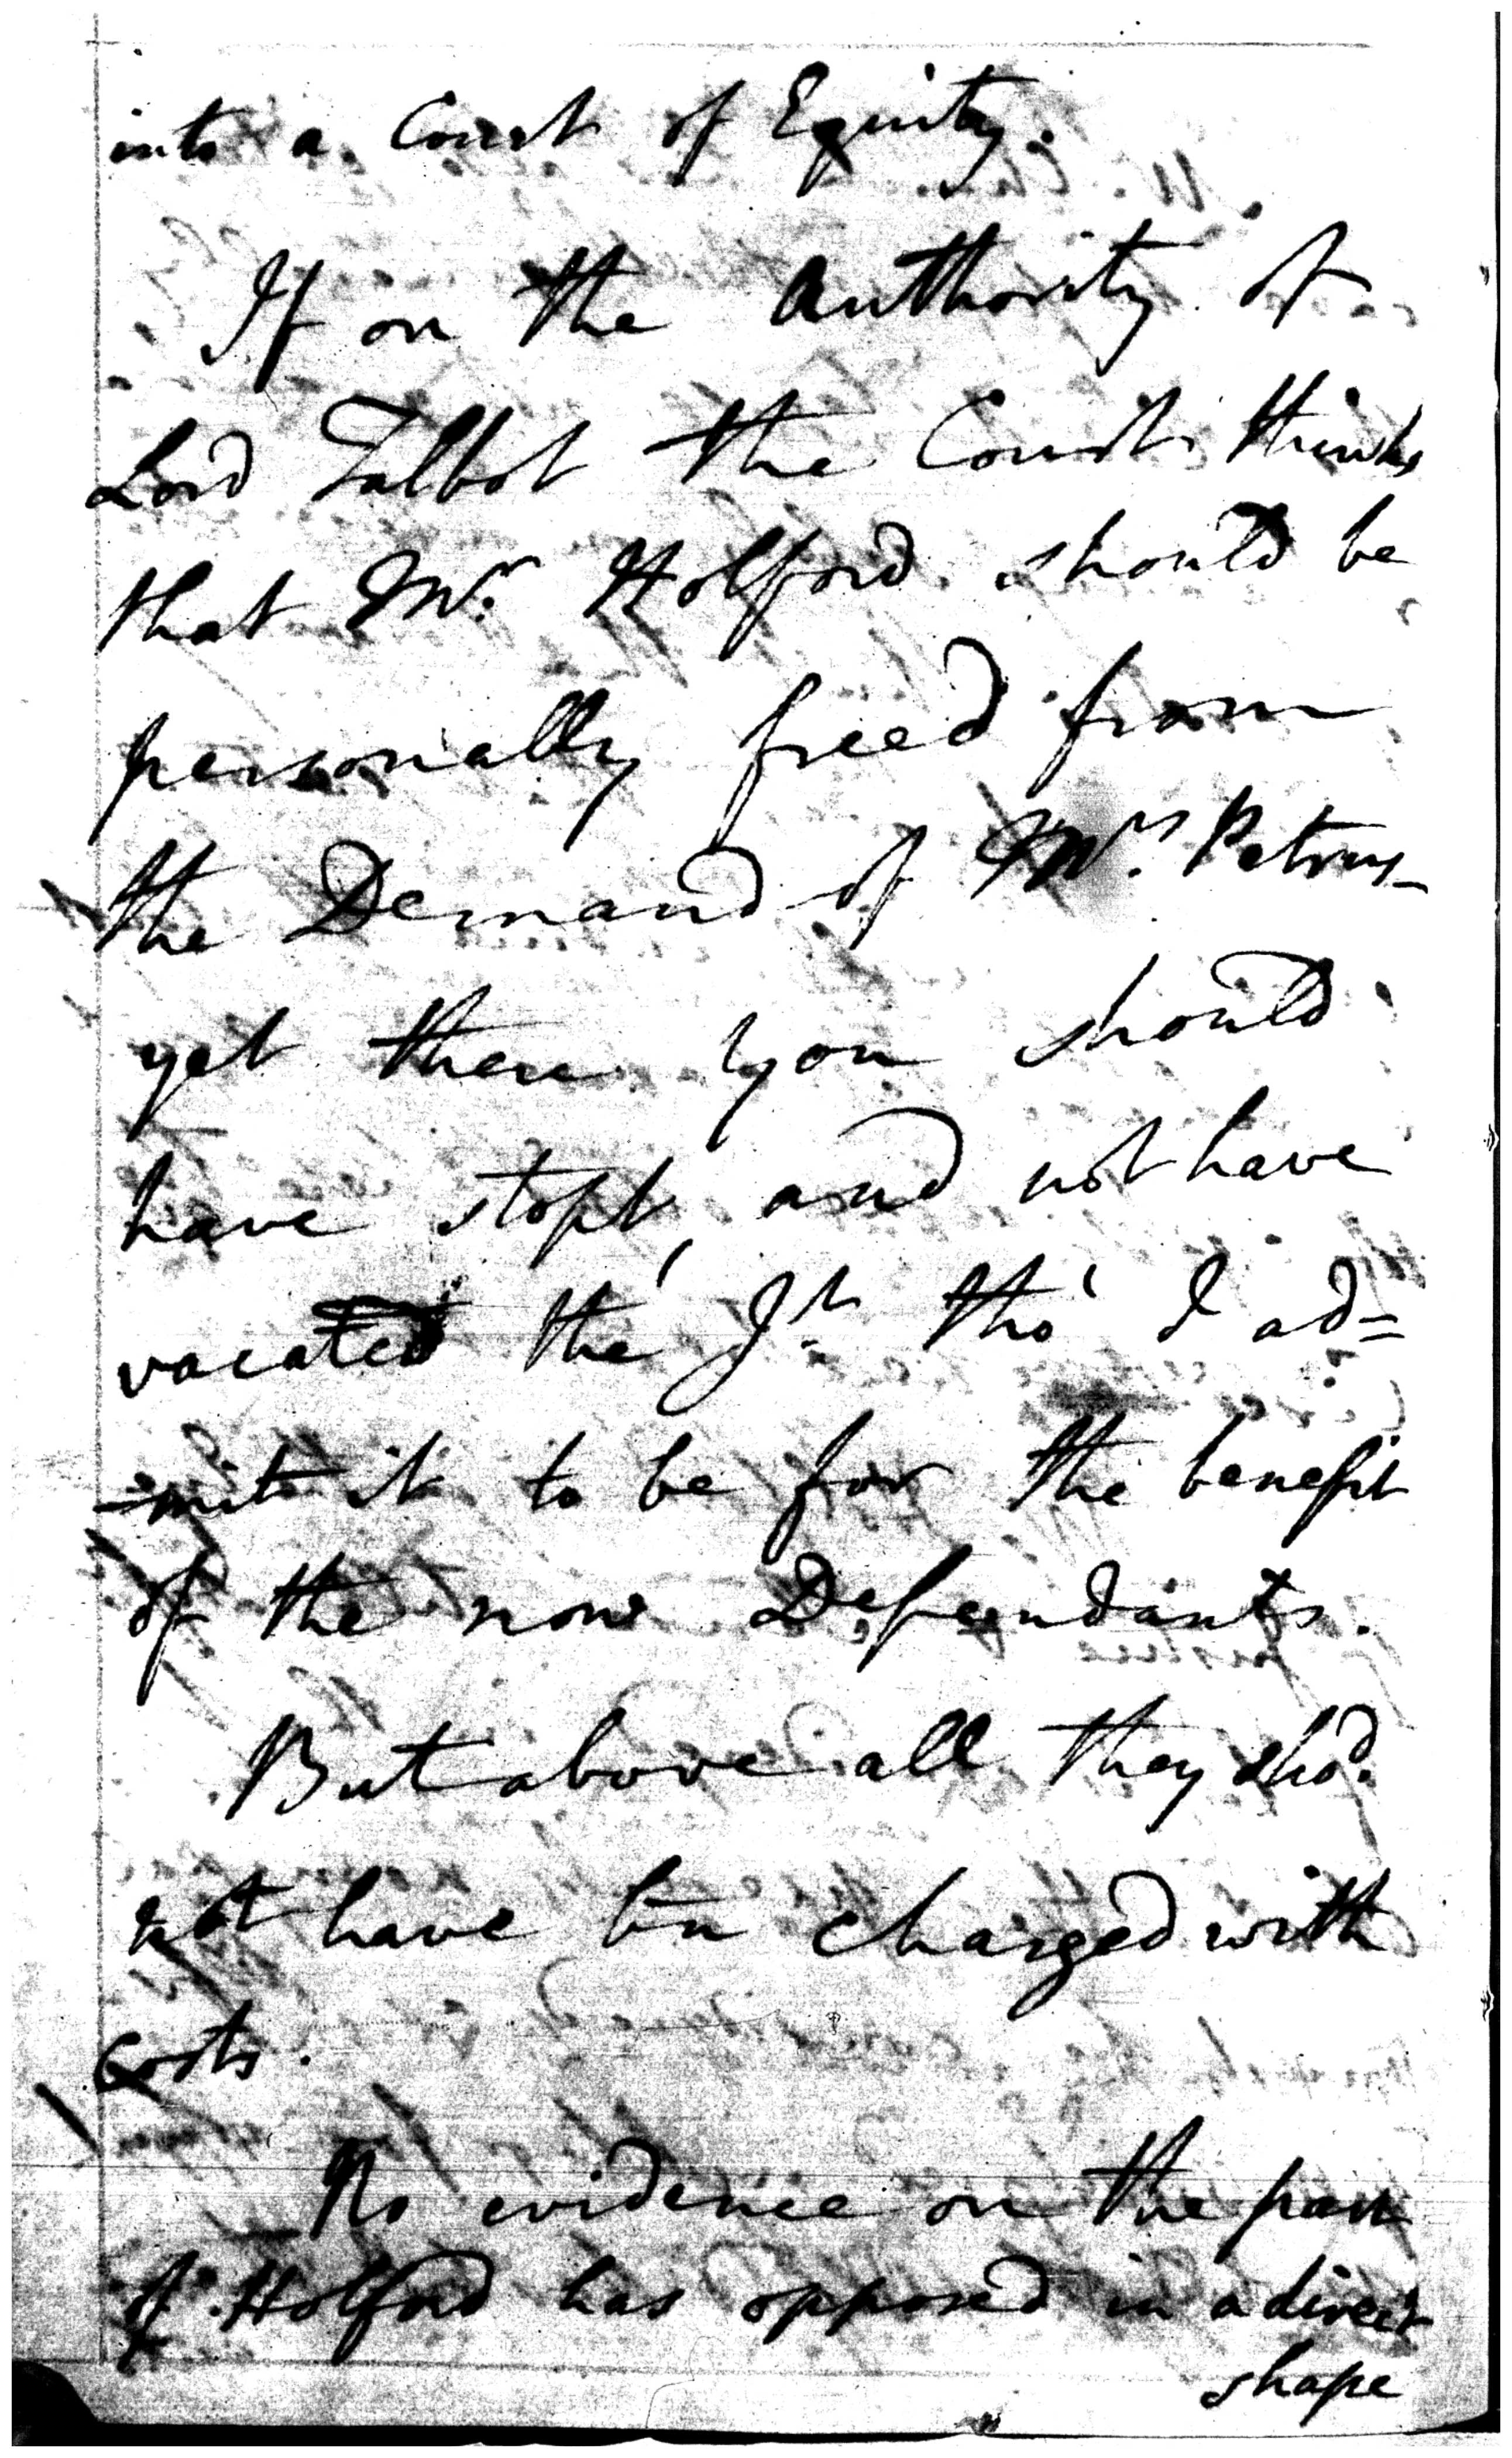 into a Court of Equity.
If on the Authority of
Lord Talbot the Court thinks
that Mr. Holford should be
personally freed from
the Demand of Mrs.
yet then you should
have stopt, and not have
vacated the Jt. tho' I ad=
-mit it to be for the benefit
of the now Defendants.
But above all they shod.
not have bn charged with
Costs.
No evidence on the part
of Holford has opposed in a direct
shape